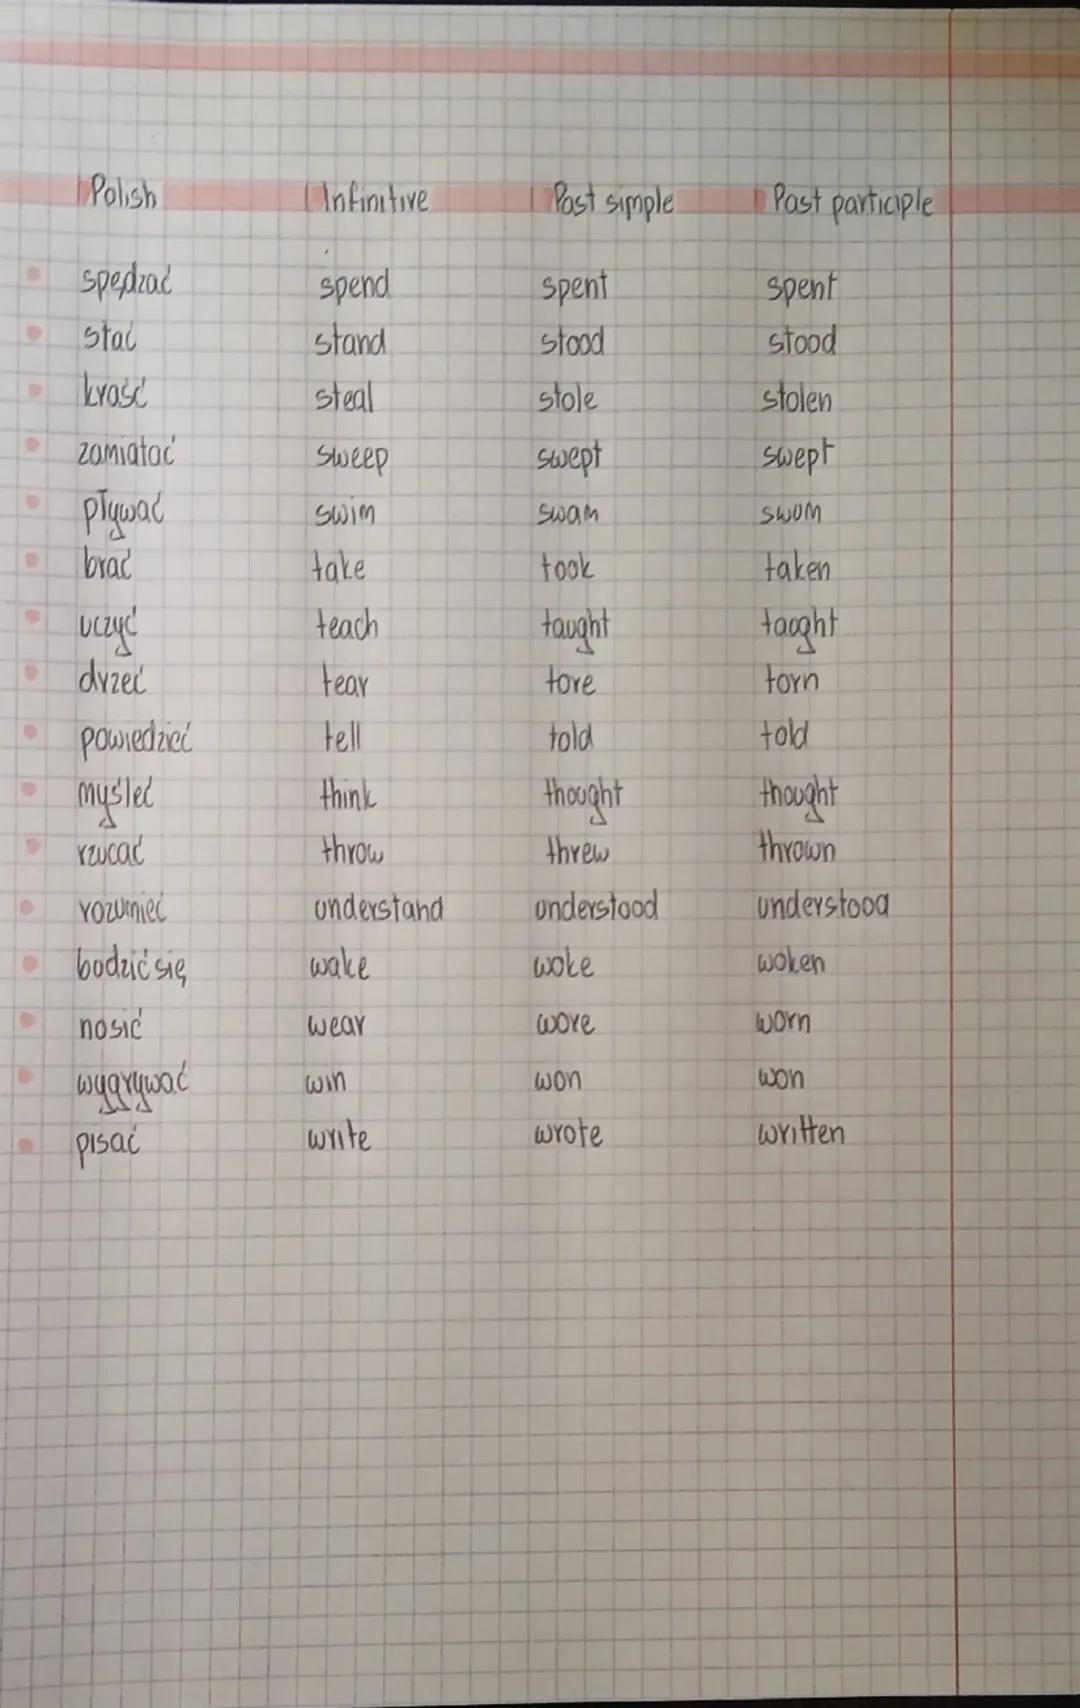 Polish Infinitive Past simple Past participle
spędzać spend spent spent
stać stand stood stood
kraść steal stole stolen
zamiatać sweep swept swept
pływać swim swam swum
brać take took taken
uczyć teach taught taught
drzeć tear tore torn
powiedzieć tell told told
myśleć think thought thought
rzucać throw threw thrown
rozumieć understand understood understood
budzić się wake woke woken
nosić wear wore worn
wygrywać win won won
pisać write wrote written